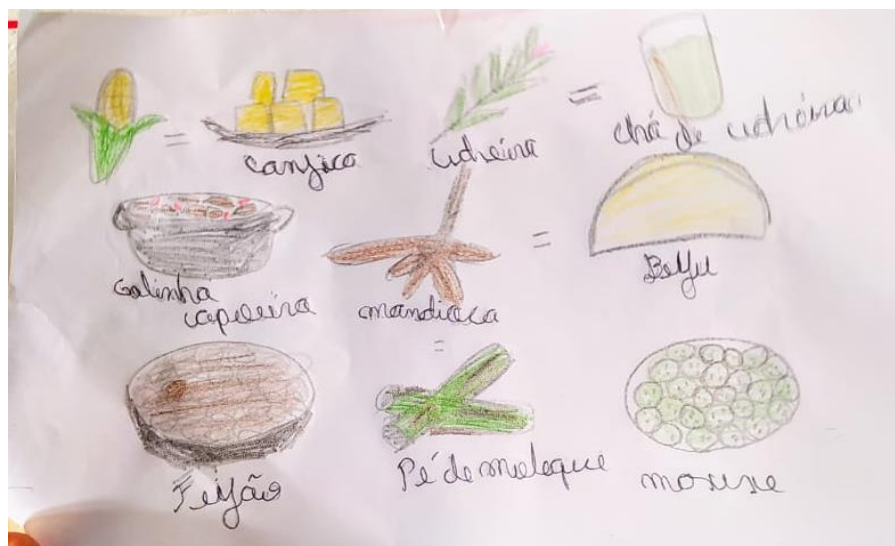 =
canjica
cidreira
=
chá de
Galinha
capoeira
mandioca
=
Beju
=
Feijão
Pé de moleque